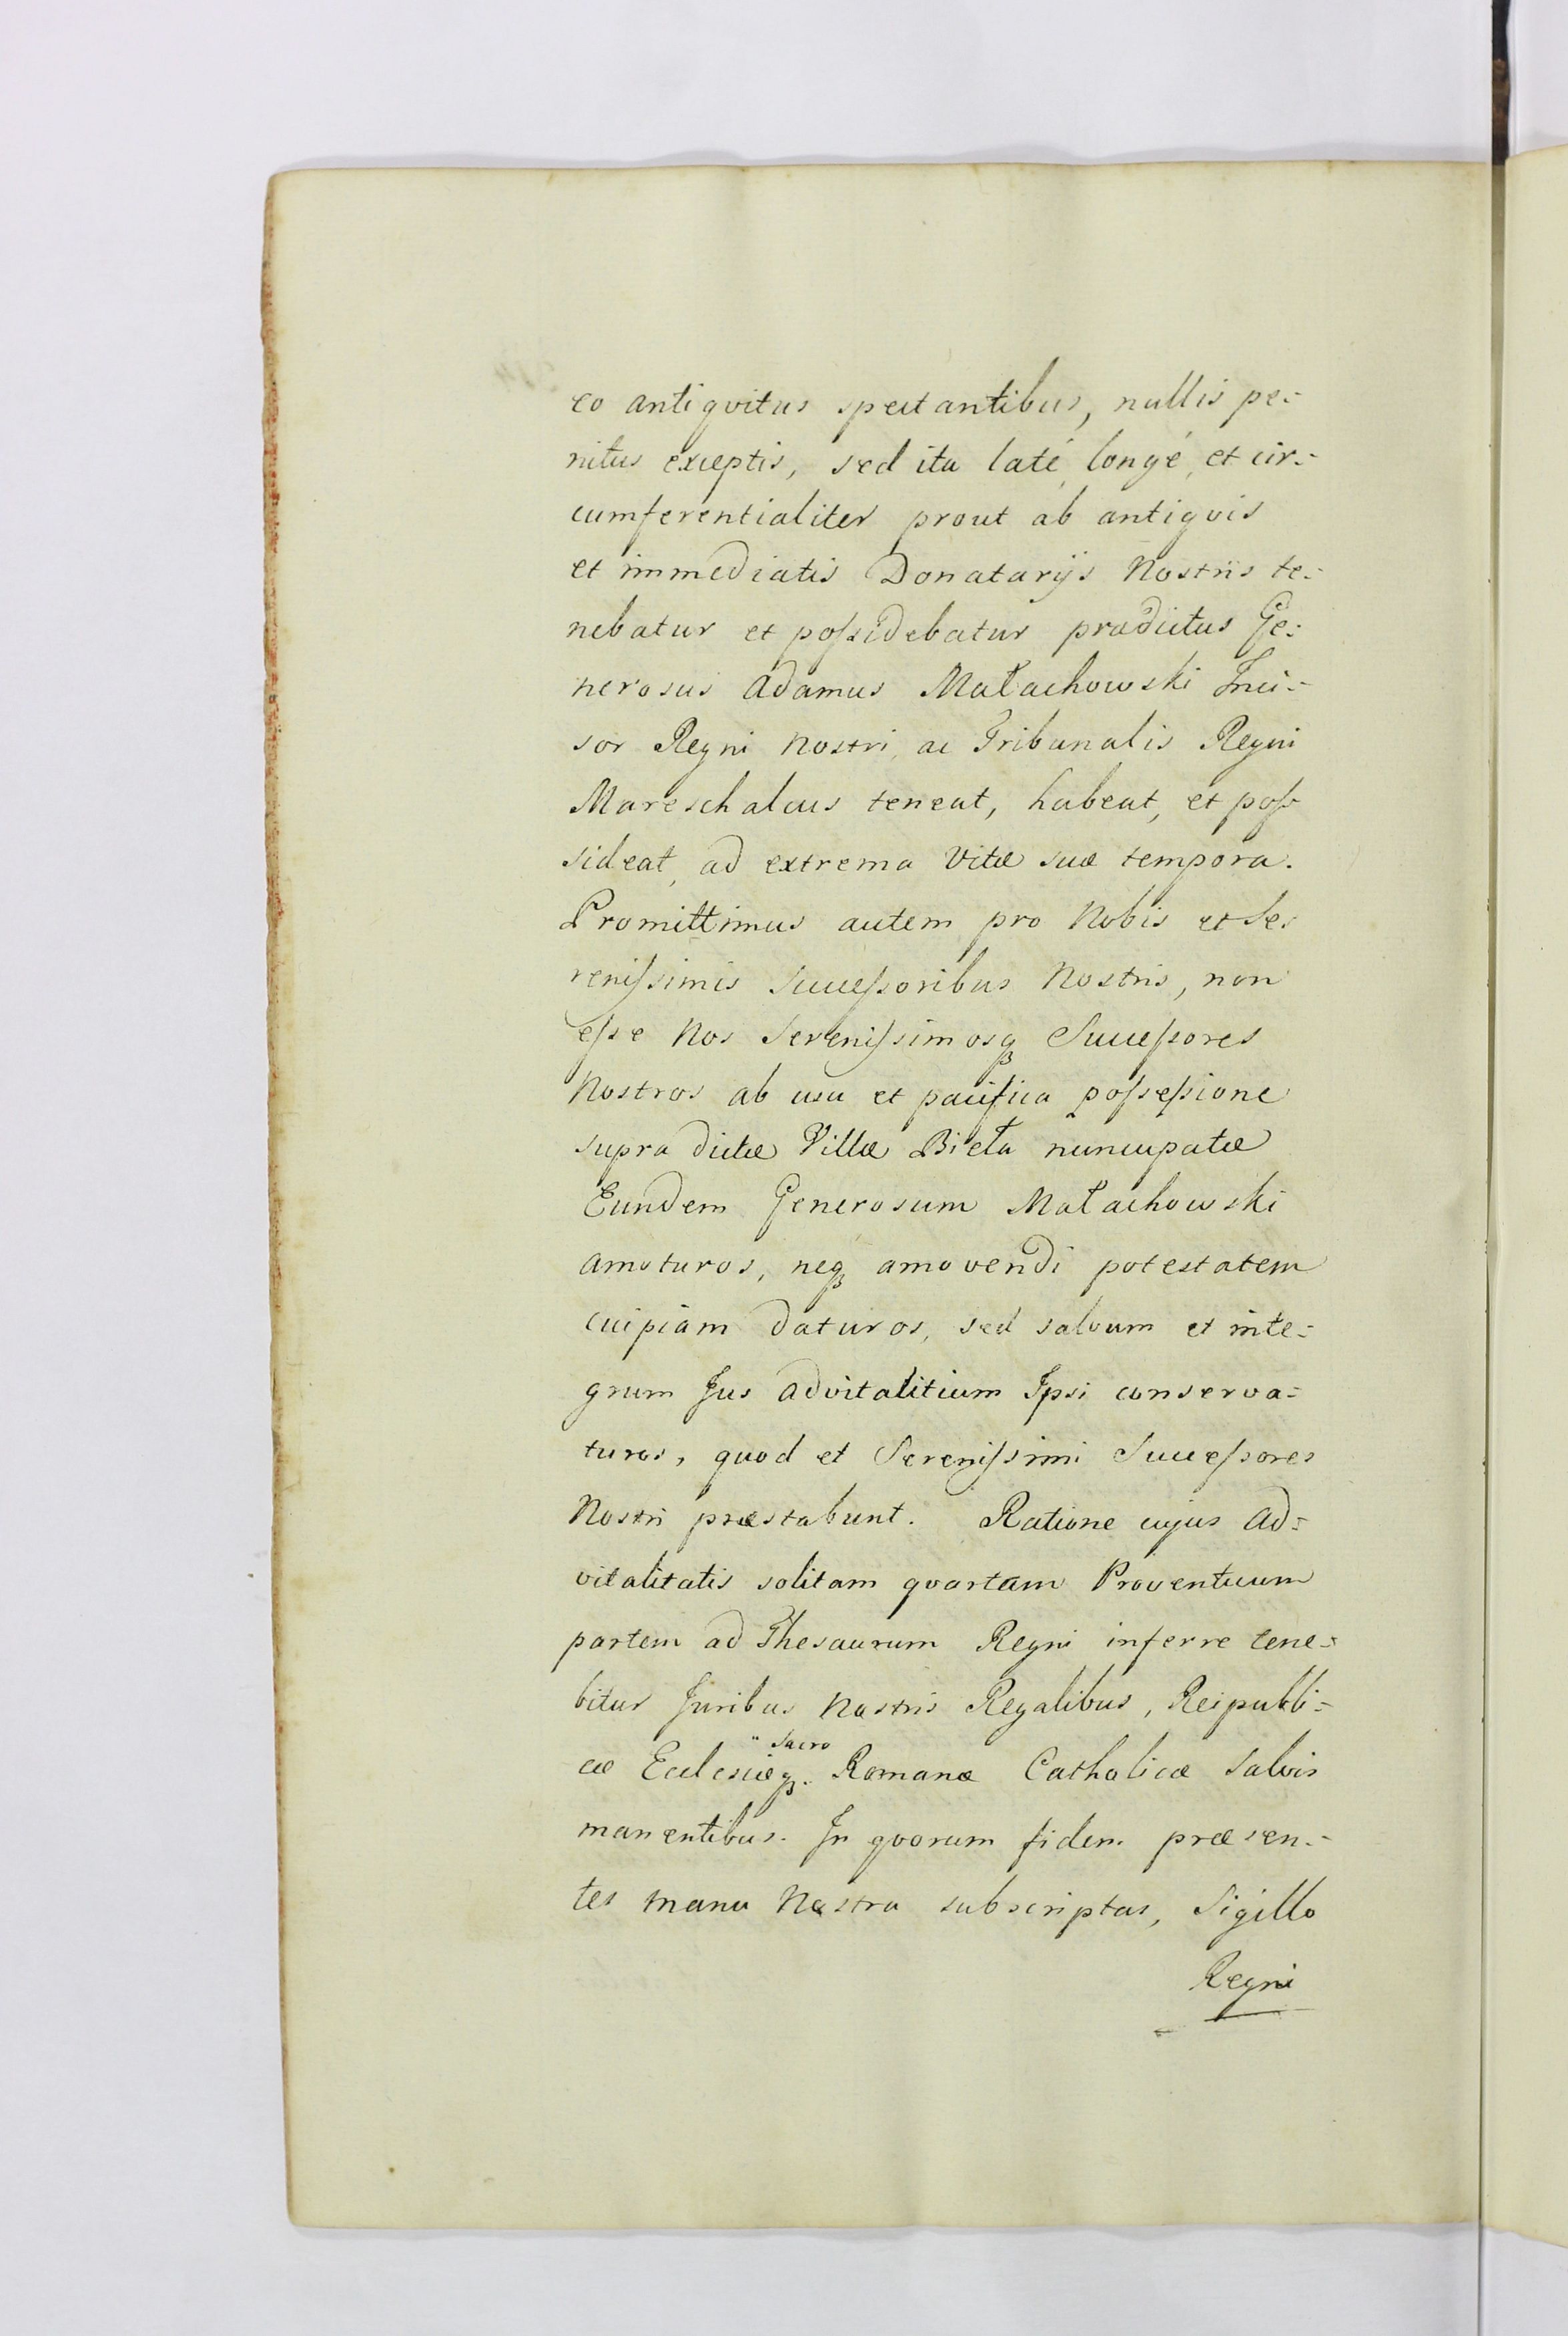 eo antiqvitus spectantibus, nullis pe=
nitus exceptis, sed ita laté, longé, et cir=
cumferentialiter prout ab antiqvis
et immediatis Donatarijs Nostris te=
nebatur et poſsidebatur prædictus Ge=
nerosus Adamus Małachowski Inci=
sor Regni Nostri, ac Tribunalis Regni
Mareschalcus teneat, habeat, et poſ=
sideat, ad extrema Vitæ suæ tempora.
Promittimus autem pro Nobis et Se=
reniſsimis Succeſsoribus Nostris, non
eſse Nos Sereniſsimosqꝫ Succeſsores
Nostros ab usu et pacifica poſseſsione
supra dictæ Villæ Bieła nuncupatæ
Eundem Generosum Małachowski
amoturos, neqꝫ amovendi potestatem
cuipiam daturos, sed salvum et inte=
grum Jus advitalitium Ipsi conserva=
turos, quod et Sereniſsimi Succeſsores
Nostri præstabunt. Ratione cujus Ad=
vitalitatis solitam qvartam Proventuum
partem ad Thesaurum Regni inferre tene=
bitur Juribus Nostris Regalibus, Reipubli=
" Sacro
cæ Ecclesiæqꝫ. Romanæ Catholicæ Salvis
manentibus. In qvorum fidem præsen=
tes manu Nostra subscriptas, Sigillo
Regni